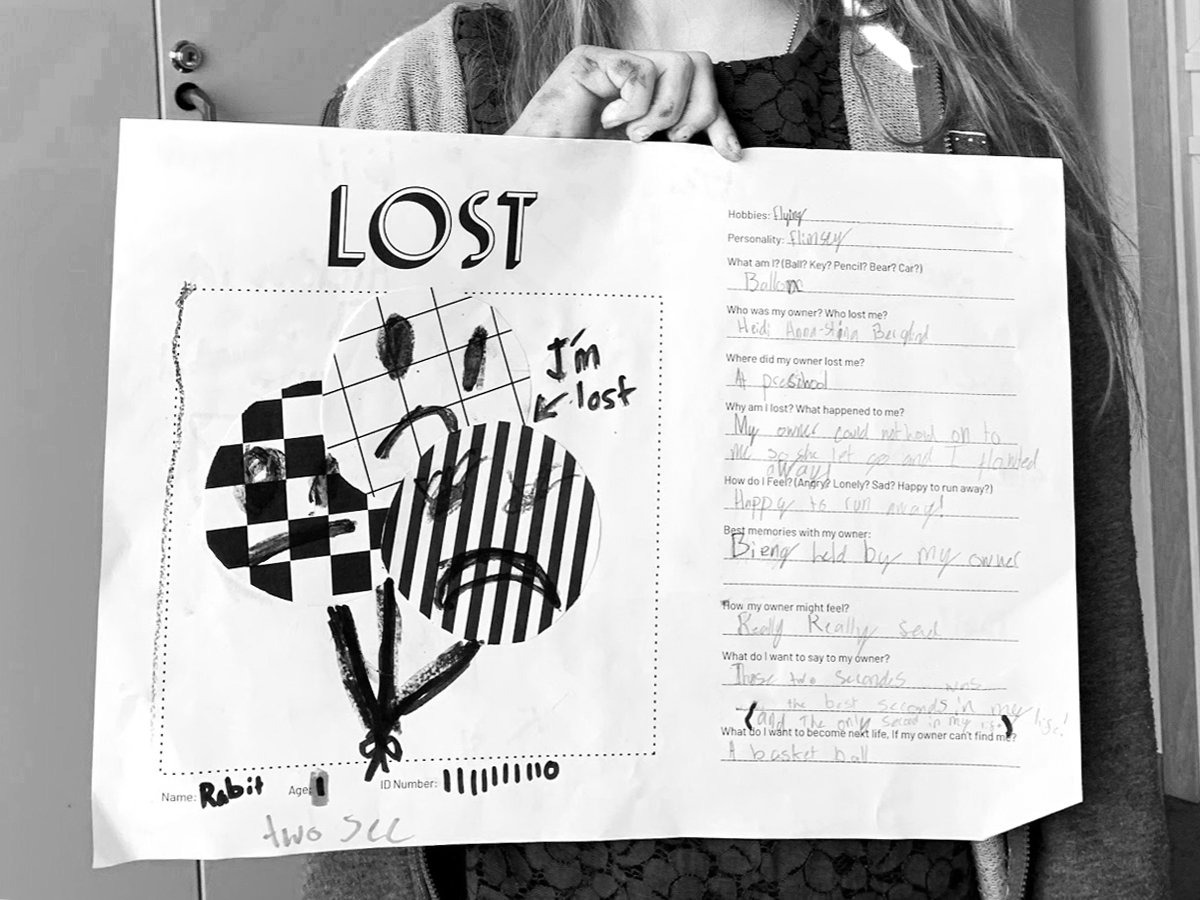 LOST
I'm
lost
Name: Rabit Age: 1 ID Number: 11111111110
two sec
Hobbies: flying
Personality: flimsey
What am I? (Ball? Key? Pencil? Bear? Car?)
Balloon
Who was my owner? Who lost me?
Heidi Anna-Stina
Where did my owner lost me?
At preschool
Why am I lost? What happened to me?
My owner could not hold on to
me so she let go and I floated
away!
How do I Feel? (Angry? Lonely? Sad? Happy to run away?)
Happy to run away!
Best memories with my owner:
Bieng held by my owner
How my owner might feel?
Really Really sad
What do I want to say to my owner?
Those two secondes was
the best seconds in my life!
(and The only second in my life)
What do I want to become next life, If my owner can't find me?
A basket ball